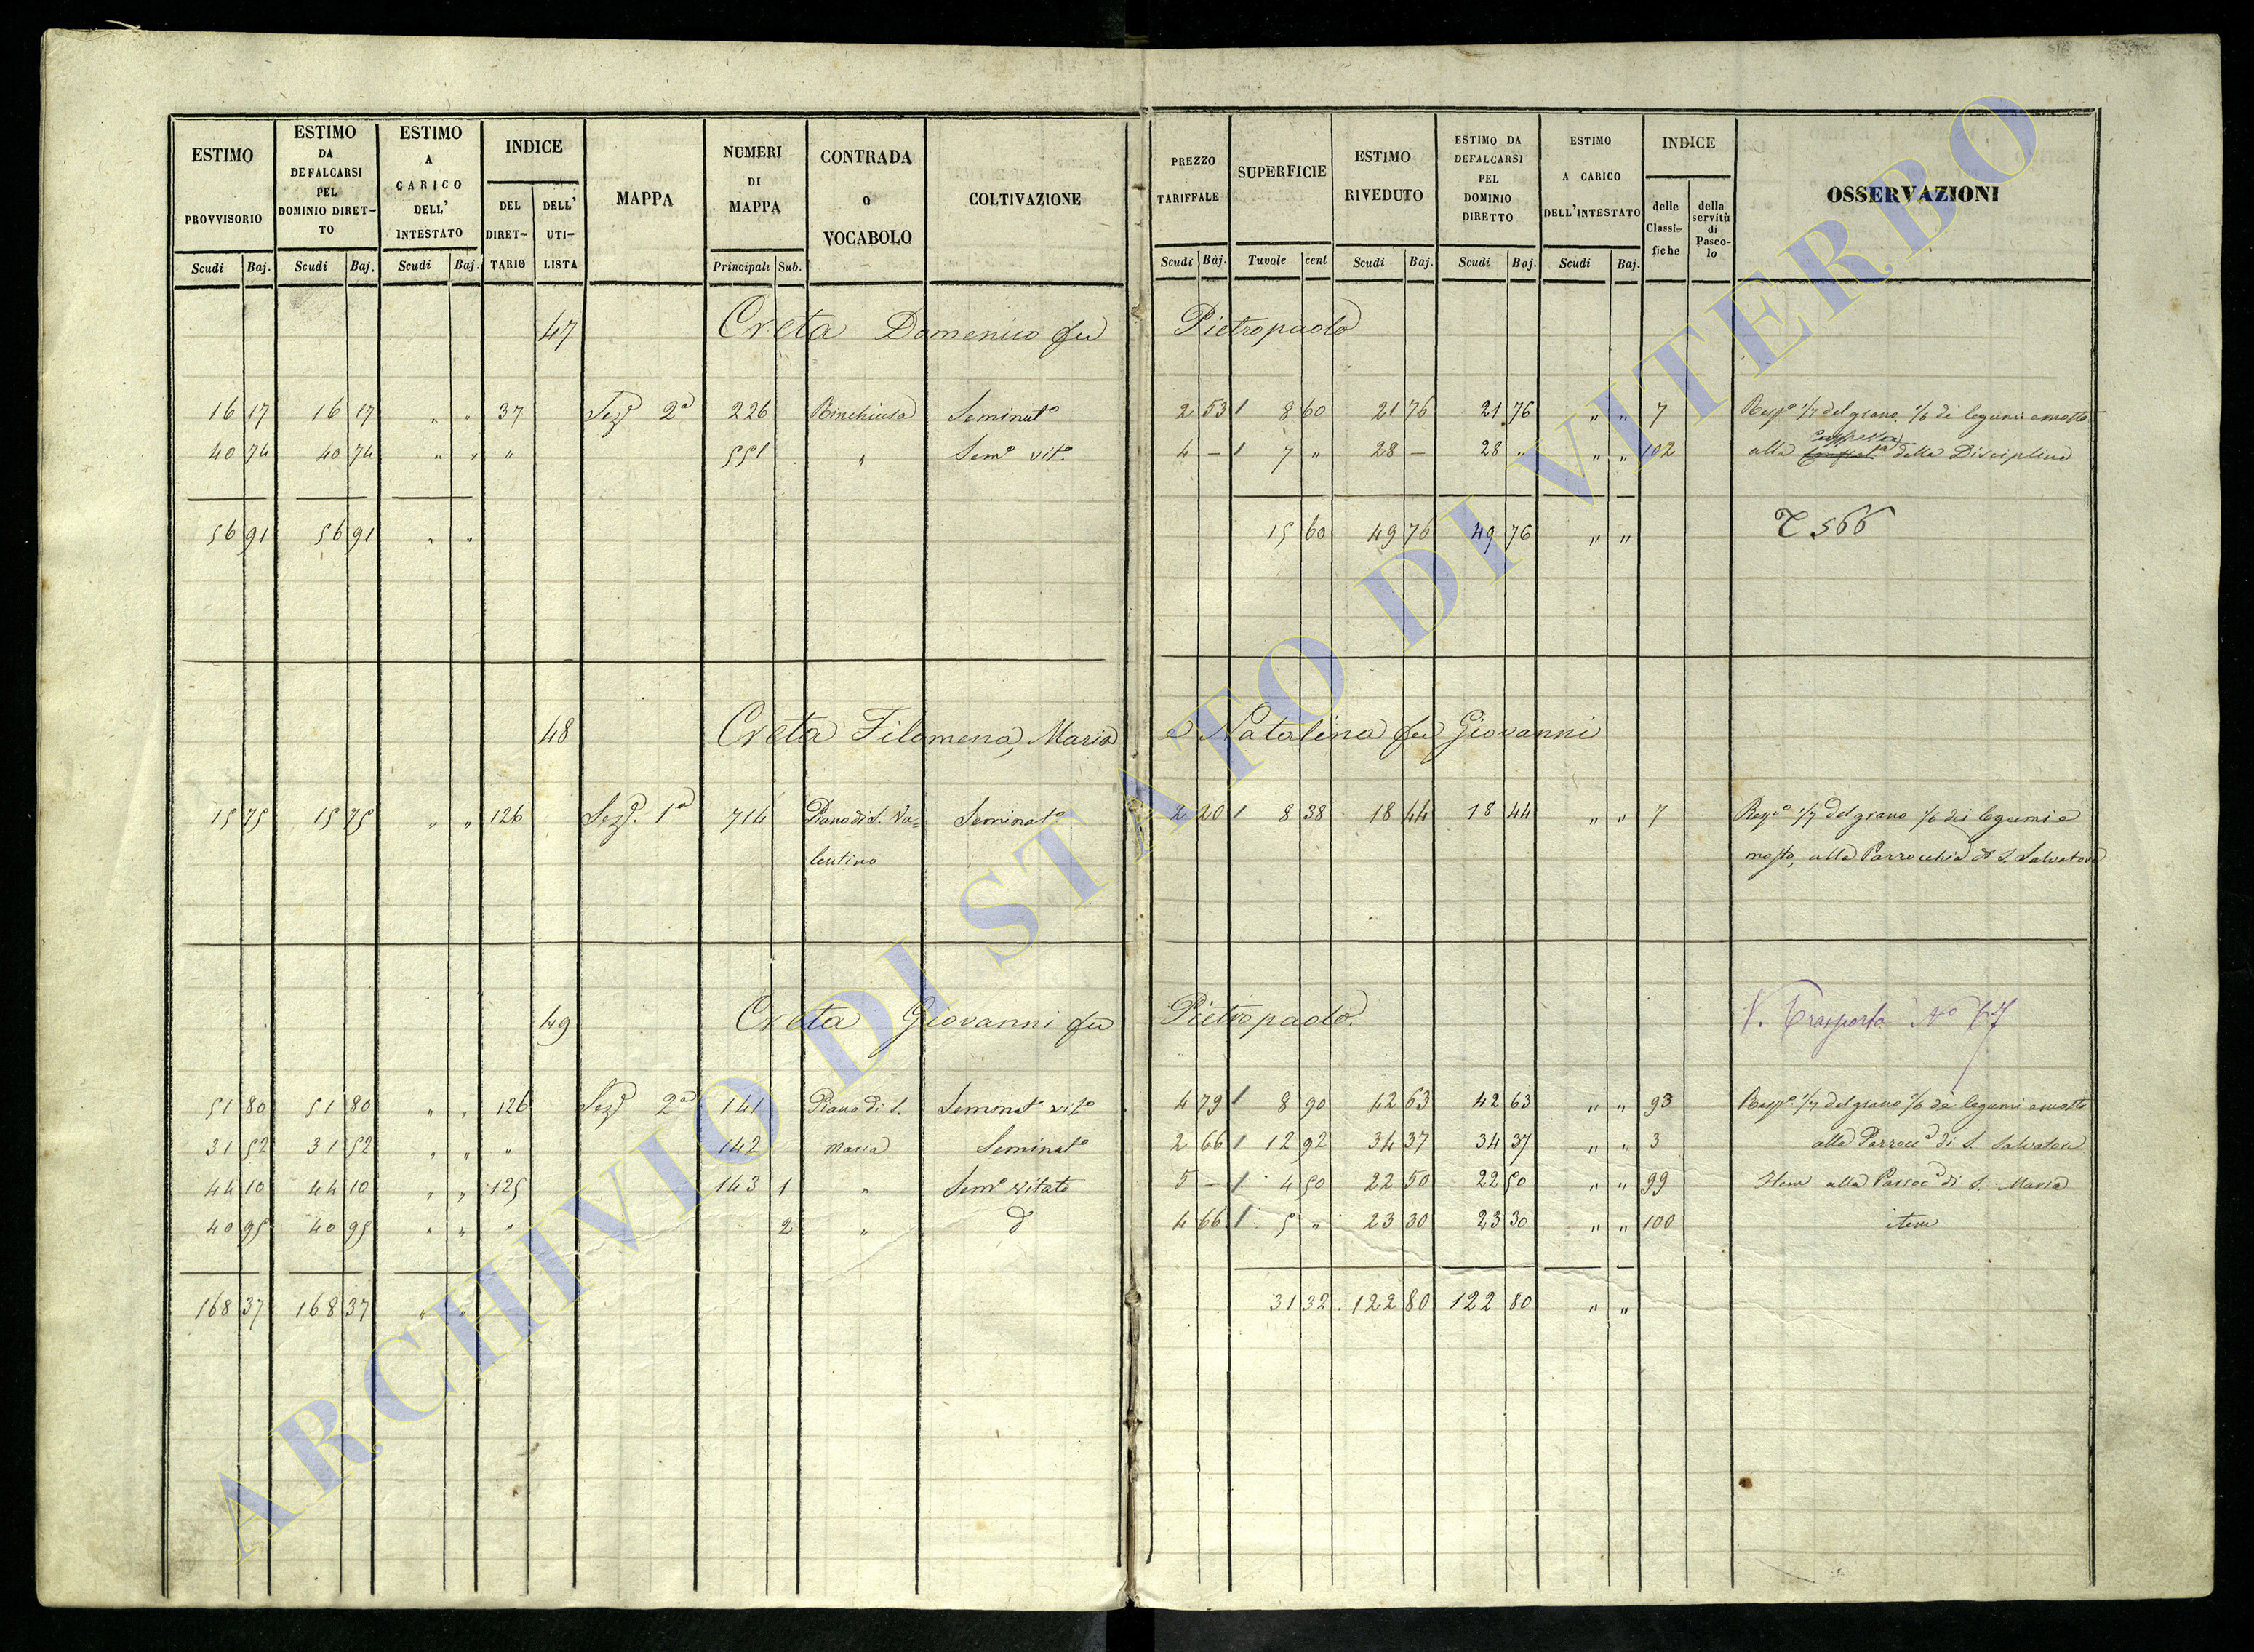 ESTIMO PROVVISORIO | ESTIMO DA DEFALCARSI PEL DOMINIO DIRETTO | ESTIMO A CARICO DELL' INTESTATO | INDICE DEL DIRETTARIO | DELL' UTILISTA | MAPPA | NUMERI DI MAPPA | CONTRADA O VOCABOLO | COLTIVAZIONE | PREZZO TARIFFALE | SUPERFICIE | ESTIMO RIVEDUTO | ESTIMO DA DEFALCARSI PEL DOMINIO DIRETTO | ESTIMO A CARICO DELL'INTESTATO | INDICE delle Classifiche | della servitù di Pascolo | OSSERVAZIONI
Scudi Baj. | Scudi Baj. | Scudi Baj. | Principali Sub. | Scudi Baj. | Tuvole cent | Scudi Baj. | Scudi Baj. | Scudi Baj.
47 Creta Domenico fu Pietropaolo
16 17 | 16 17 | " " | 37 | Sezᵉ 2ª | 226 | Rinchiusa | Seminatº | 2 53 | 1 8 60 | 21 76 | 21 76 | " " | 7 | Rispª 1/7 del grano 1/6 dè legumi e mosto
40 74 | 40 74 | " " | " | 551 | " | Semº vitº | 4 – | 1 7 " | 28 – | 28 " | " " | 102 | alla della Disciplina
56 91 | 56 91 | " " | 15 60 | 49 76 | 49 76 | " " | T 566
48 Creta Filomena, Maria e Natalina fu Giovanni
15 75 | 15 75 | " " | 126 | Sezᵉ 1ª | 714 | Piano di S. Va= | Seminatº | 2 20 | 1 8 38 | 18 44 | 18 44 | " " | 7 | Rispª 1/7 del grano 1/6 dei legumi e
lentino | mosto, alla Parrocchia di S. Salvatore
49 Creta Giovanni fu Pietropaolo. | V. Trasporto Nº 67
51 80 | 51 80 | " " | 126 | Sezᵉ 2ª | 141 | Piano di S. | Seminatº vitº | 4 79 | 1 8 90 | 42 63 | 42 63 | " " | 93 | Rispª 1/7 del grano 1/6 dè legumi e mosto
31 52 | 31 52 | " " | " | 142 | Maria | Seminatº | 2 66 | 1 12 92 | 34 37 | 34 37 | " " | 3 | alla Parrocª di S. Salvatore
44 10 | 44 10 | " " | 125 | 143 1 | " | Semº vitato | 5 – | 1 4 50 | 22 50 | 22 50 | " " | 99 | Item alla Parrocª di S. Maria
40 95 | 40 95 | " " | " | 2 | " | d | 4 66 | 1 5 " | 23 30 | 23 30 | " " | 100 | item
168 37 | 168 37 | " " | 31 32 | 122 80 | 122 80 | " "
ARCHIVIO DI STATO DI VITERBO